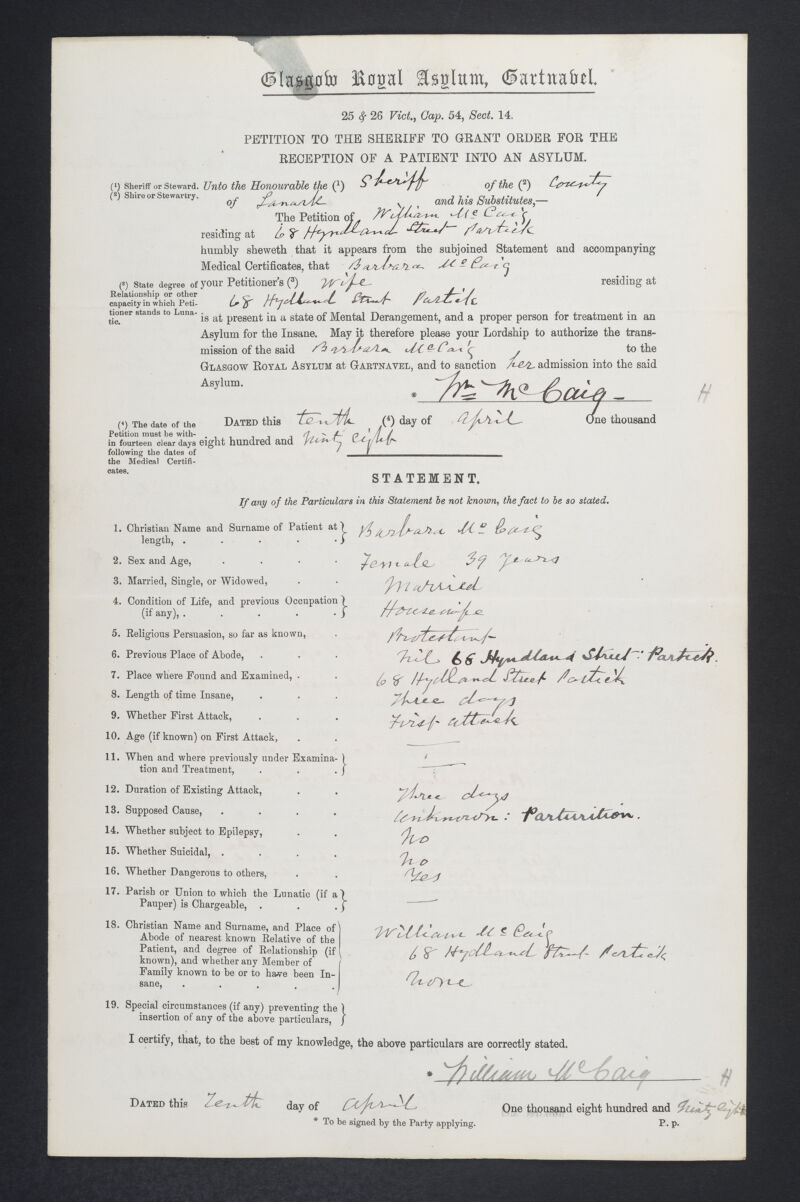 Glasgow Royal Asylum, Gartnabel.
25 & 26 Vict., Cap. 54, Sect. 14.
PETITION TO THE SHERIFF TO GRANT ORDER FOR THE
RECEPTION OF A PATIENT INTO AN ASYLUM.
(1) Sheriff or Steward. Unto the Honourable the (1) Sheriff of the (2) County
(2) Shire or Stewartry. of Lanark and his Substitutes,—
The Petition of William McCaig
residing at 68 Hyndland Street Partick
humbly sheweth that it appears from the subjoined Statement and accompanying
Medical Certificates, that Barbara McCaig
(3) State degree of Relationship or other capacity in which Petitioner stands to Lunatic. your Petitioner's (3) Wife residing at
68 Hydland Street Partick
is at present in a state of Mental Derangement, and a proper person for treatment in an
Asylum for the Insane. May it therefore please your Lordship to authorize the trans-
mission of the said Barbara McCaig to the
GLASGOW ROYAL ASYLUM at GARTNAVEL, and to sanction her admission into the said
Asylum.
* Wm McCaig H
(4) The date of the Petition must be within fourteen clear days following the dates of the Medical Certificates. DATED this tenth (4) day of April One thousand
eight hundred and Ninty eight
STATEMENT.
If any of the Particulars in this Statement be not known, the fact to be so stated.
1. Christian Name and Surname of Patient at
length, . . . . . Barbara McCaig
2. Sex and Age, . . . . Female 39 years
3. Married, Single, or Widowed, . . Married
4. Condition of Life, and previous Occupation
(if any), . . . . . Housewife
5. Religious Persuasion, so far as known, . Protestant
6. Previous Place of Abode, . . . Nil 68 Hyndland Street: Partick.
7. Place where Found and Examined, . . 68 Hydland Street Partick
8. Length of time Insane, . . . Three days
9. Whether First Attack, . . . First attack
10. Age (if known) on First Attack, . . —
11. When and where previously under Examina-
tion and Treatment, . . . —
12. Duration of Existing Attack, . . Three days
13. Supposed Cause, . . . . Unknown: Parturition.
14. Whether subject to Epilepsy, . . No
15. Whether Suicidal, . . . . No
16. Whether Dangerous to others, . . Yes
17. Parish or Union to which the Lunatic (if a
Pauper) is Chargeable, . . . —
18. Christian Name and Surname, and Place of William McCaig
Abode of nearest known Relative of the
Patient, and degree of Relationship (if 68 Hydland Street Partick
known), and whether any Member of
Family known to be or to have been In- None
sane, . . . . .
19. Special circumstances (if any) preventing the
insertion of any of the above particulars,
I certify, that, to the best of my knowledge, the above particulars are correctly stated.
* William McCaig H
DATED this Tenth day of April One thousand eight hundred and Ninty Eight
* To be signed by the Party applying. P. p.